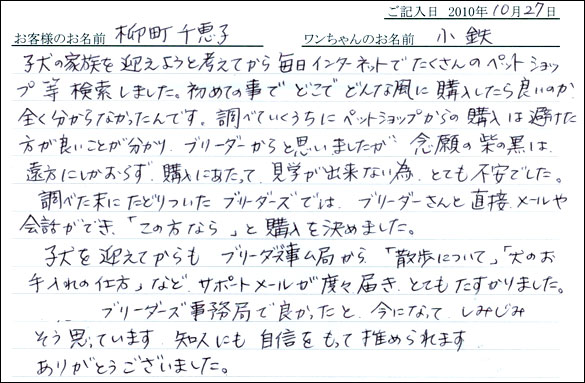 ご記入日 2010年10月27日
お客様のお名前 柳町 千恵子 ワンちゃんのお名前 小鉄
子犬の家族を迎えようと考えてから毎日インターネットでたくさんのペットショッ
プ等検索しました。初めての事でどこでどんな風に購入したら良いのか
全く分からなかったんです。調べていくうちにペットショップからの購入は避けた
方が良いことが分かり、ブリーダーからと思いましたが、念願の柴の黒は
遠方にしかおらず、購入にあたって、見学が出来ない為、とても不安でした。
調べた末にたどりついたブリーダーズでは、ブリーダーさんと直接メールや
会話ができ、「この方なら」と購入を決めました。
子犬を迎えてからも ブリーダーズ事ム局から、「散歩について」「犬のお
手入れの仕方」など、サポートメールが度々届き、とてもたすかりました。
ブリーダーズ事務局で良かったと、今になって、しみじみ
そう思っています。知人にも自信をもって推められます。
ありがとうございました。